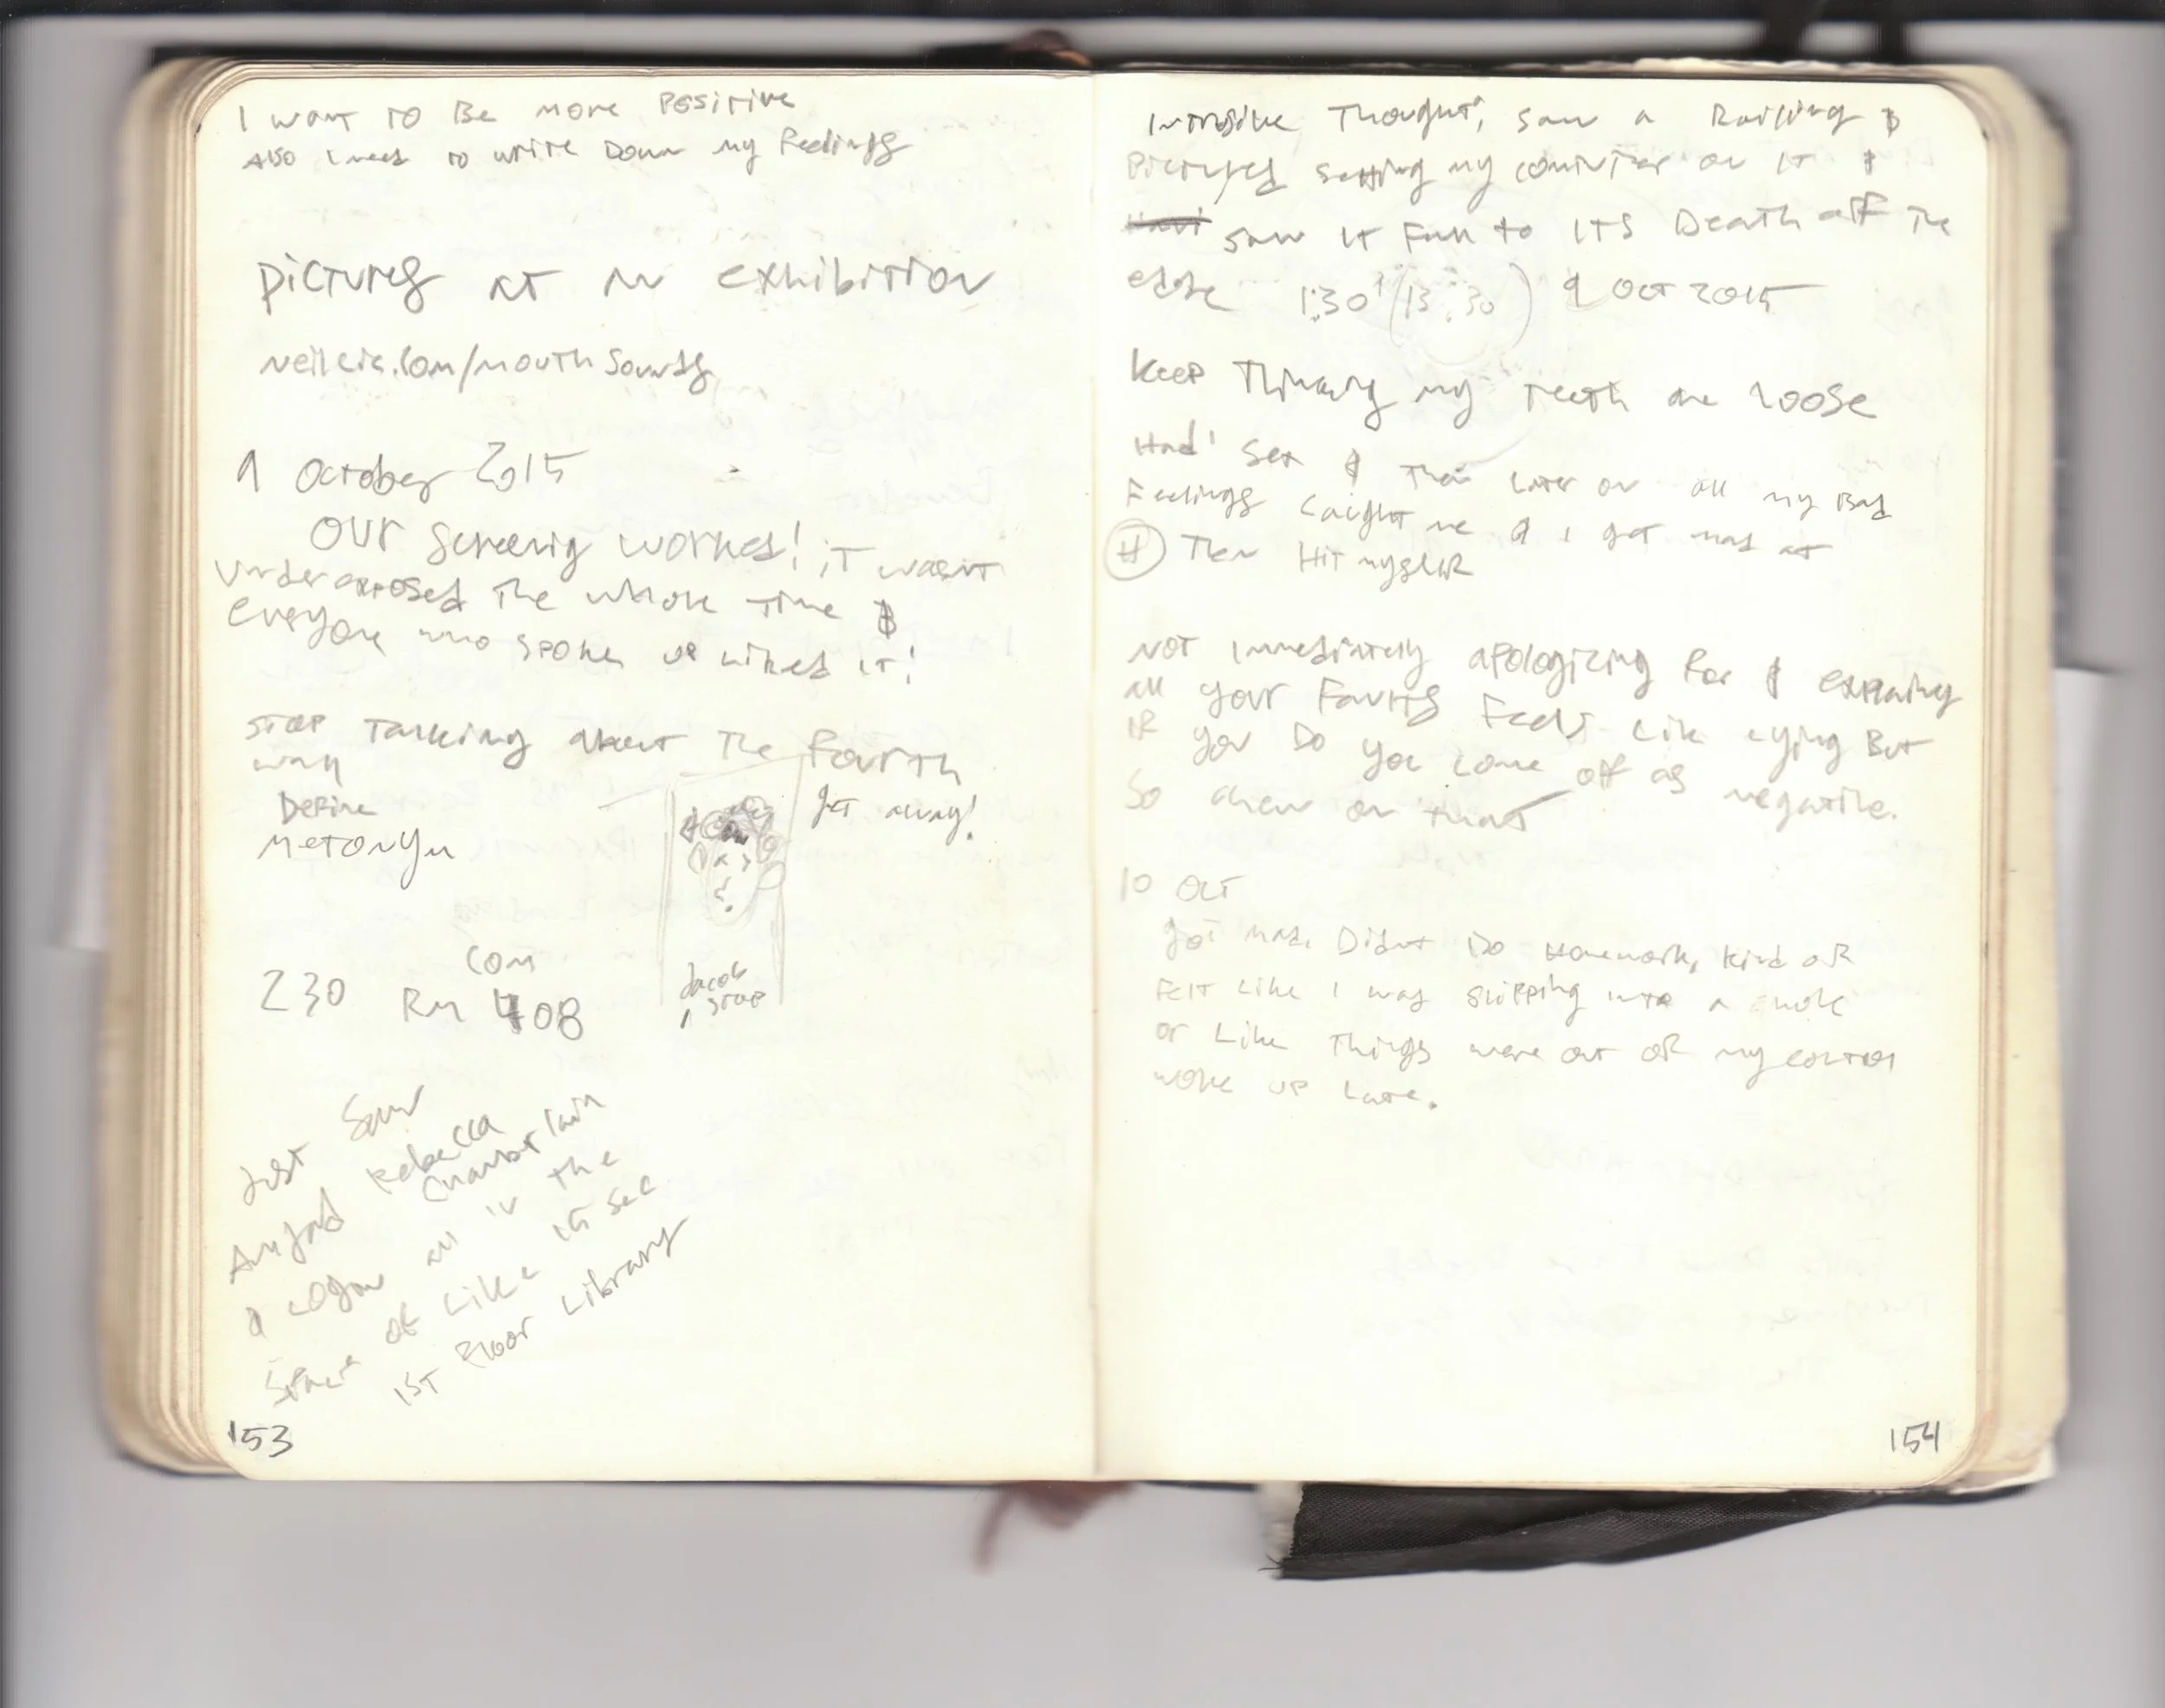 I want to be more positive
Also I need to write down my feelings
pictures at an exhibition
neilcic.com/mouthsounds
9 October 2015
our screening worked! it wasn't
underexposed the whole time &
everyone who spoke up liked it!
stop talking about the fourth
wall
Define
metonym
get away!
Jacob
stop
230 Rm 408
com
Just saw
Rebecca
Chamberlain
& Logan all in the
space of like 15 sec
1st floor library
153
Intrusive Thought, saw a Railing &
pictured setting my computer on it &
saw it Fall to ITS Death off the
edge 1:30 (13:30) 9 Oct 2015
Keep Thinking my teeth are loose
Had sex & then later on all my Bad
Feelings caught me & I got mad at
(H) Then Hit myself
Not immediately apologizing for & explaining
all your Faults Feels like lying But
if you Do you come off as negative.
So chew on that
10 Oct
got mad, Didn't Do Homework, kind of
felt like I was slipping into a hole
or like things were out of my control
woke up late.
154